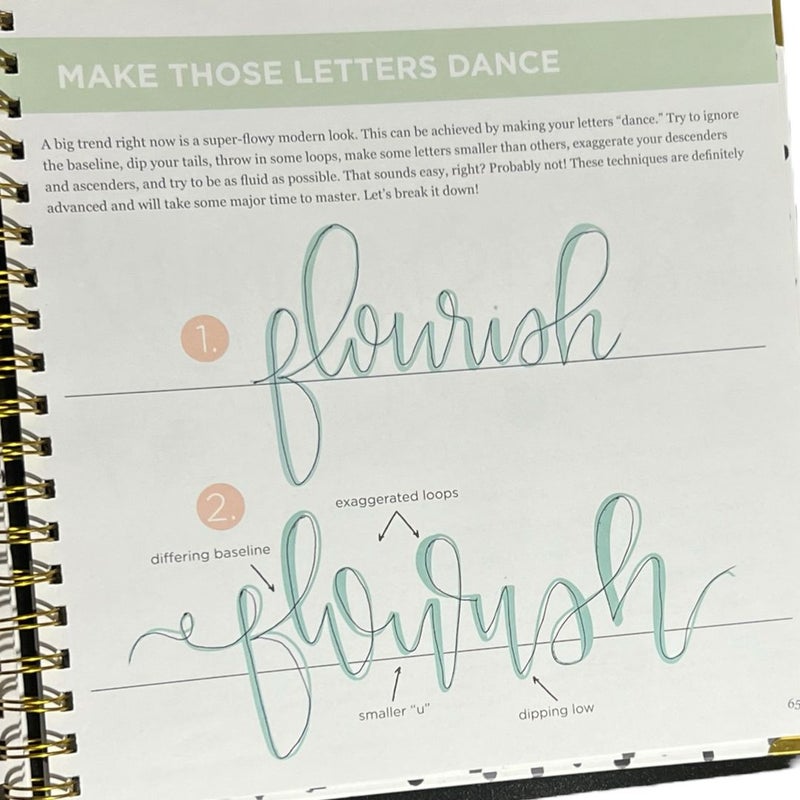 MAKE THOSE LETTERS DANCE
A big trend right now is a super-flowy modern look. This can be achieved by making your letters “dance.” Try to ignore
the baseline, dip your tails, throw in some loops, make some letters smaller than others, exaggerate your descenders
and ascenders, and try to be as fluid as possible. That sounds easy, right? Probably not! These techniques are definitely
advanced and will take some major time to master. Let’s break it down!
1.
flourish
2.
exaggerated loops
differing baseline
flourish
smaller “u”
dipping low
65